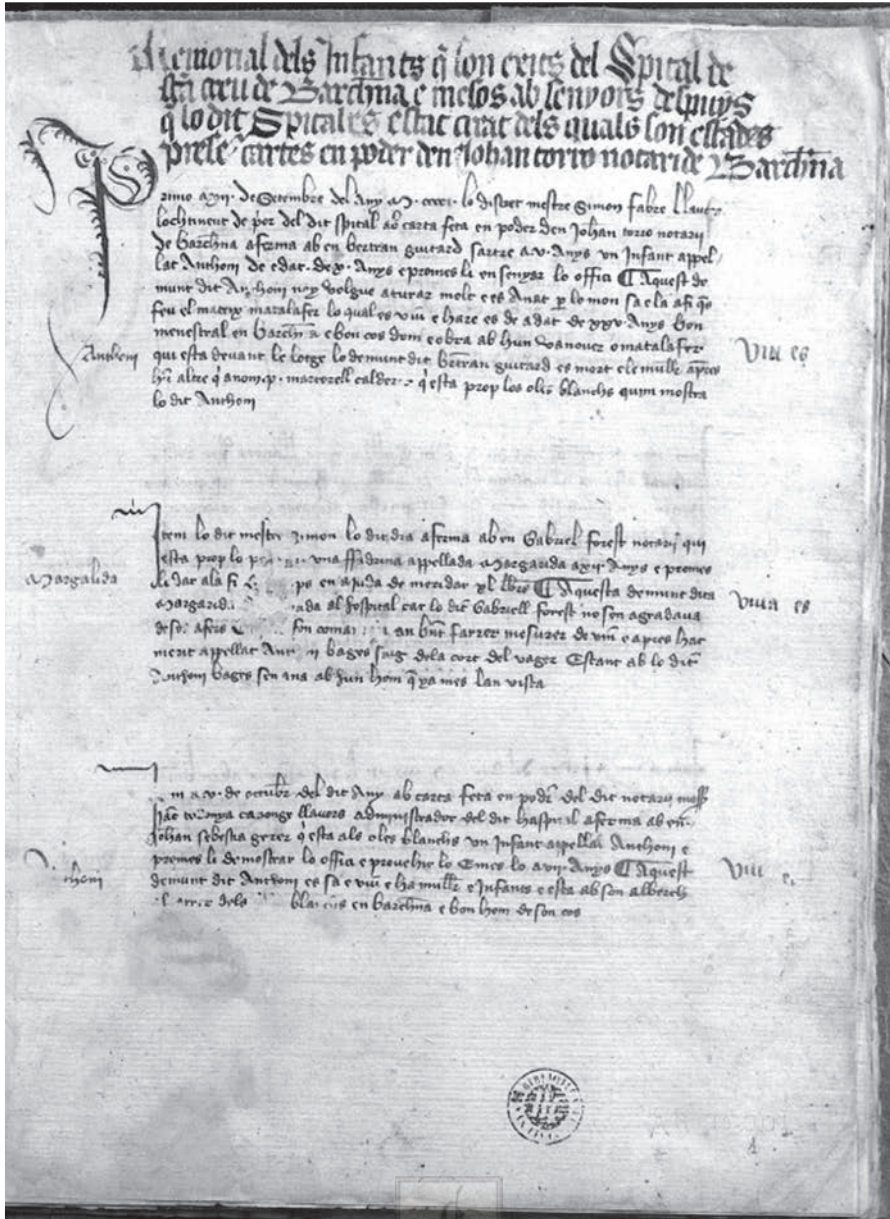 Memorial dels Infants q̄ son exits del Spital de
sc̄ta creu de Barchn̄a e mesos ab senyors despuys
q̄ lo dit Spital es estat creat dels quals son estades
prese cartes en poder den Johan torro notari de Barchn̄a
Primo a xxij. de Setembre del Any M. cccci. lo discret mestre Simon fabre
lochtinent de p̄or del dit spital ab carta feta en poder den Johan torro notary
de barchn̄a aferma ab en bertran guitard sartre a v. Anys un Infant appel
lat Anthoni de edat de x. Anys e promes li ensenyar lo offici ¶ Aquest de
munt dit Anthoni noy volgue aturar molt e es Anat p̱ lo mon sa e la
feu el mateix matalafer lo qual es viu e hare es de adat de xxv. Anys bon
menestral en barchn̄a e bon cos dom e obra ab hun vanover o matalafer
qui esta devant le lotge lo demunt dit bertran guitard es mort e le muller apres
altre q̄ a nom .p. martorell calderer q̄ esta prop los oles blanchs quim mostra
lo dit Anthoni
Anthoni
viu es
Item lo dit mestre Simon lo dit dia aferma ab en Gabriel forest notary qui
esta prop lo una ffadrina appellada Margarida a xii. Anys e promes
li dar a la fi en ajuda de maridar xl llrs̄ ¶ Aquesta demunt dita
Margarida al hospital car lo dit Gabriell forest no son agradava
de sos afers fon comanada an farrer mesurer de vin e apres hac
marit appellat Anthoni bages saig de la cort del vager Estant ab lo dit
Anthoni bages sen ana ab hun hom q̄ ya mes lan vista
Margalida
viva es
Item a v. de octubr̄ del dit Any ab carta feta en poder del dit notary
canonge llavors administrador del dit haspital aferma ab en
Johan sebestia gerrer q̄ esta als oles blanchs un Infant appellat Anthoni e
promes li de mostrar lo offici e provehir lo a vii. Anys ¶ Aquest
demunt dit Anthoni es sa e viu e ha mullr̄ e Infants e esta ab son alberch
carrer dels blanchs en barchn̄a e bon hom de son cos
Anthoni
viu e
1